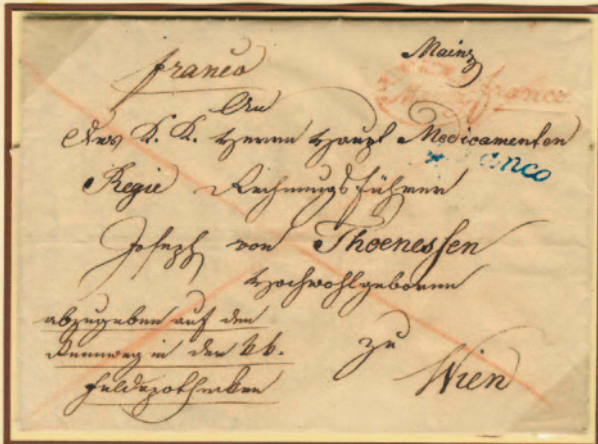 franco
Mainz
franco
An
des K. K. Herrn Haupt Medicamenten
Regie Rechnungsführer
Joseph von Thoenessen
Hochwohlgeboren
abzugeben auf dem
Rennweg in der kk.
Feldapotheken
zu
Wien